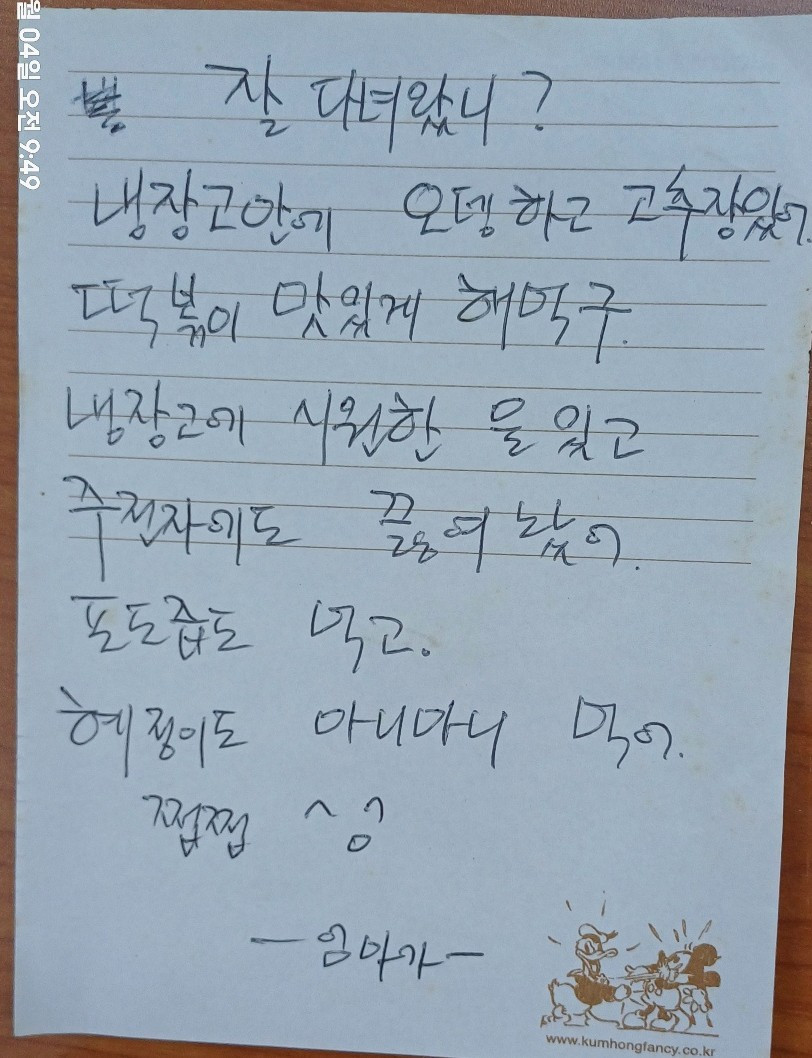 월 04일 오전 9:49
잘 다녀왔니?
냉장고안에 오뎅하고 고추장있어.
떡볶이 맛있게 해먹구.
냉장고에 시원한 물있고
주전자에도 끓여놨어.
포도즙도 먹고.
혜정이도 마니마니 먹어.
쩝쩝
-엄마가-
www.kumhongfancy.co.kr